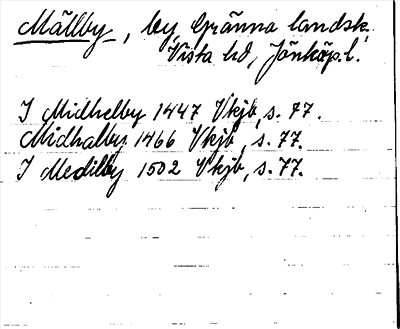 Mällby, by, Gränna landsk.
Vista hd, Jönköp.l.
I Midhelby 1447 Vkjb, s. 77.
Midhalby 1466 Vkjb, s. 77.
I Medilby 1502 Vkjb, s. 77.